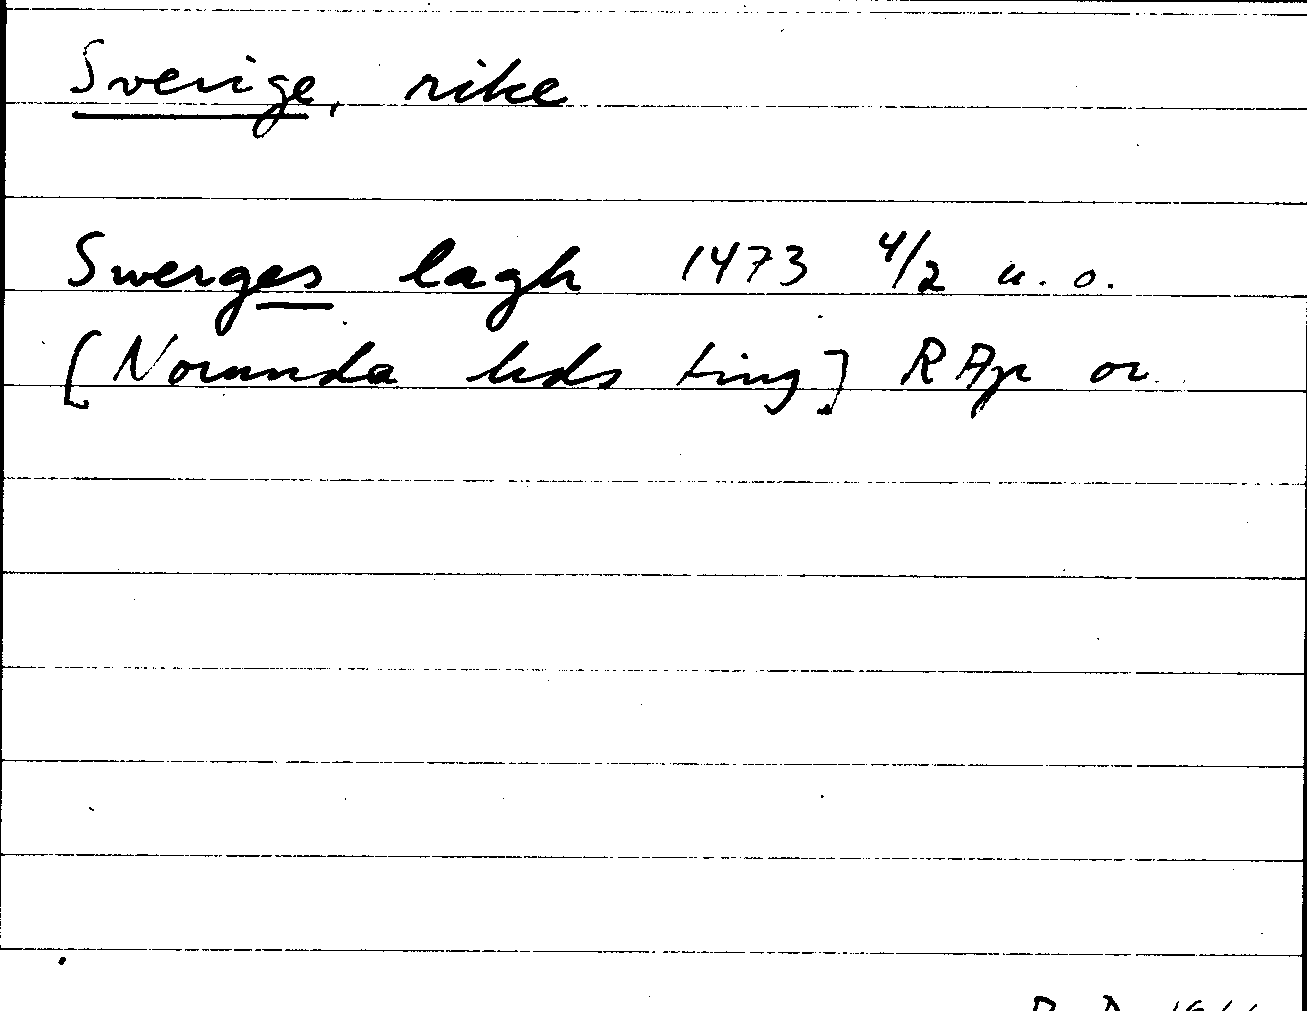 Sverige, rike
Swerges lagh 1473 4/2 u. o.
[Norunda hds ting] RAp or